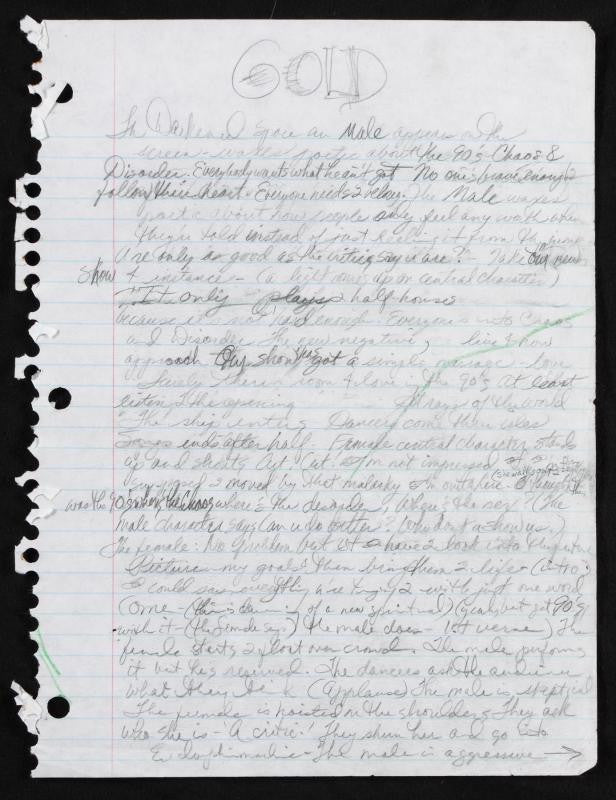 GOLD
In Darkened space an Male appears on the
screen - waxes poetic about the 90's Chaos &
Disorder. Everybody wants what he ain't got No one's brave enough 2
follow their heart. Everyone needs 2 belong. The Male waxes
poetic about how people only feel any worth when
they're told instead of just feeling it from the jump
U're only as good as the critics say u are? - Take our new
show 4 instance - (a light comes up on central character)
"It only plays 2 half-houses
because it's not hard enough. Everyone's into Chaos
and Disorder. The new negative, live 4 now
approach. Our show has got a simple message - love
Surely there's room 4 love in the 90's at least
listen 2 the opening of the world
The ship enters Dancers come their
ends after half. Female central character stands
up and shouts Cut, Cut. I'm not impressed
supposed 2 moved by that malarky I'm outta here. I thought this
was the 90's where's the Chaos where's the disorder, where's the sex? (The
male character says Can u do better? Why don't u show us.)
The female: No problem but u'll have 2 look into the future
Picture my goals then bring them 2 life - (intro)
I could say everything u're trying 2 with just one word
Come - (this is dawning of a new spiritual) (yeah, but get 90's
with it - (the female says) the male does - 1st verse) The
female starts 2 float over crowd. The male performs
it but he's reserved. The dancers ask the audience
what they think (Applause) The male is skeptical
The female is hoisted on the shoulders They ask
who she is - A critic! They shun her and go into
Endorphinmachine - The male is aggressive →